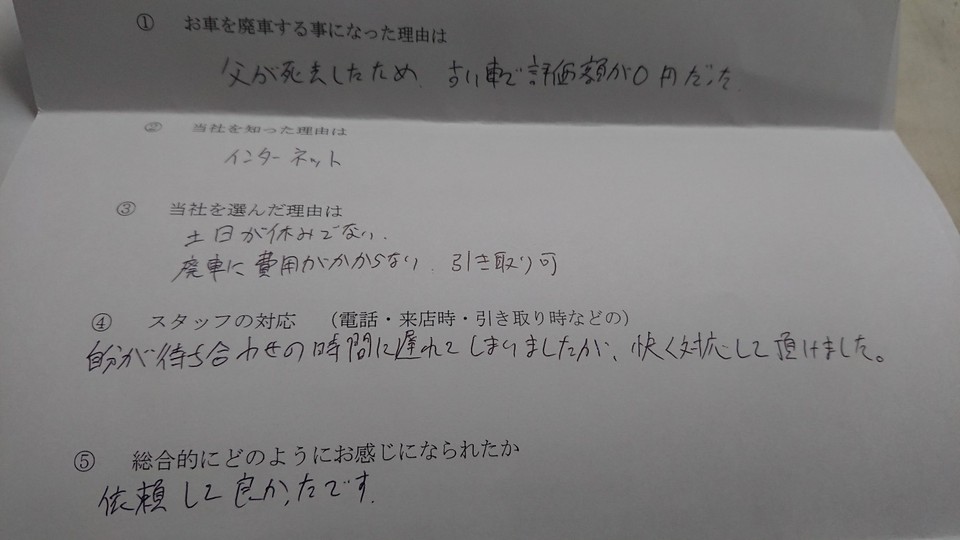 ① お車を廃車する事になった理由は
父が死去したため、古い車で評価額が0円だった
② 当社を知った理由は
インターネット
③ 当社を選んだ理由は
土日が休みでない、
廃車に費用がかからない、引き取り可
④ スタッフの対応 (電話・来店時・引き取り時などの)
自分が待ち合わせの時間に遅れてしまいましたが、快く対応して頂けました。
⑤ 総合的にどのようにお感じになられたか
依頼して良かったです。